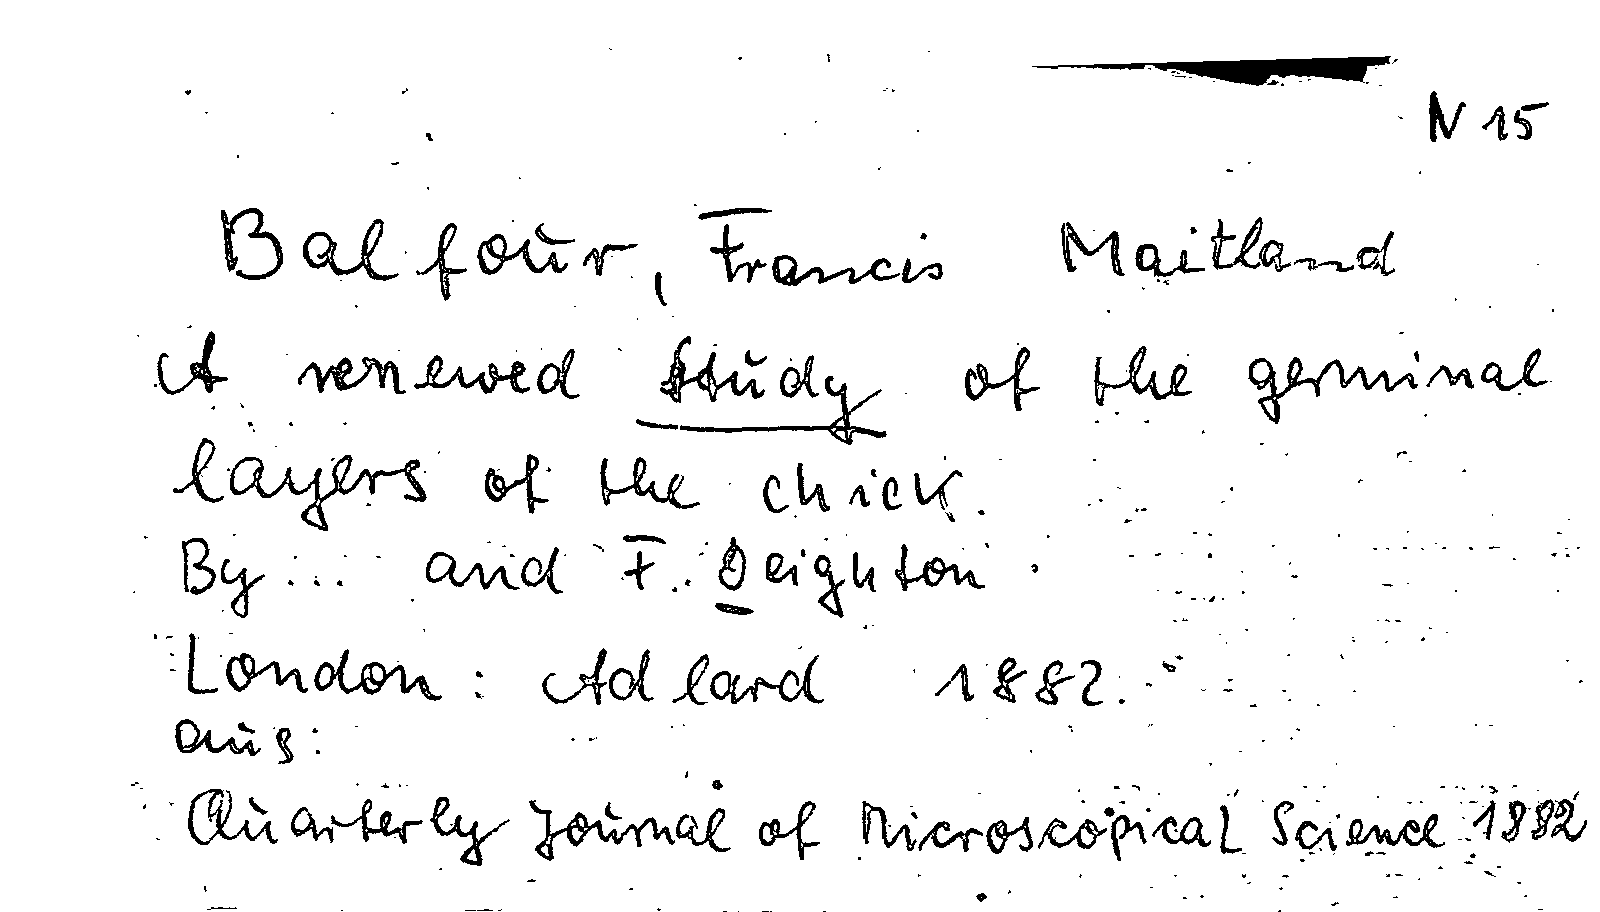 N 15
Balfour, Francis Maitland
A renewed Study of the germinal
layers of the chick.
By ... and F. Deighton.
London: Adlard 1882.
aus:
Quarterly Journal of Microscopical Science 1882